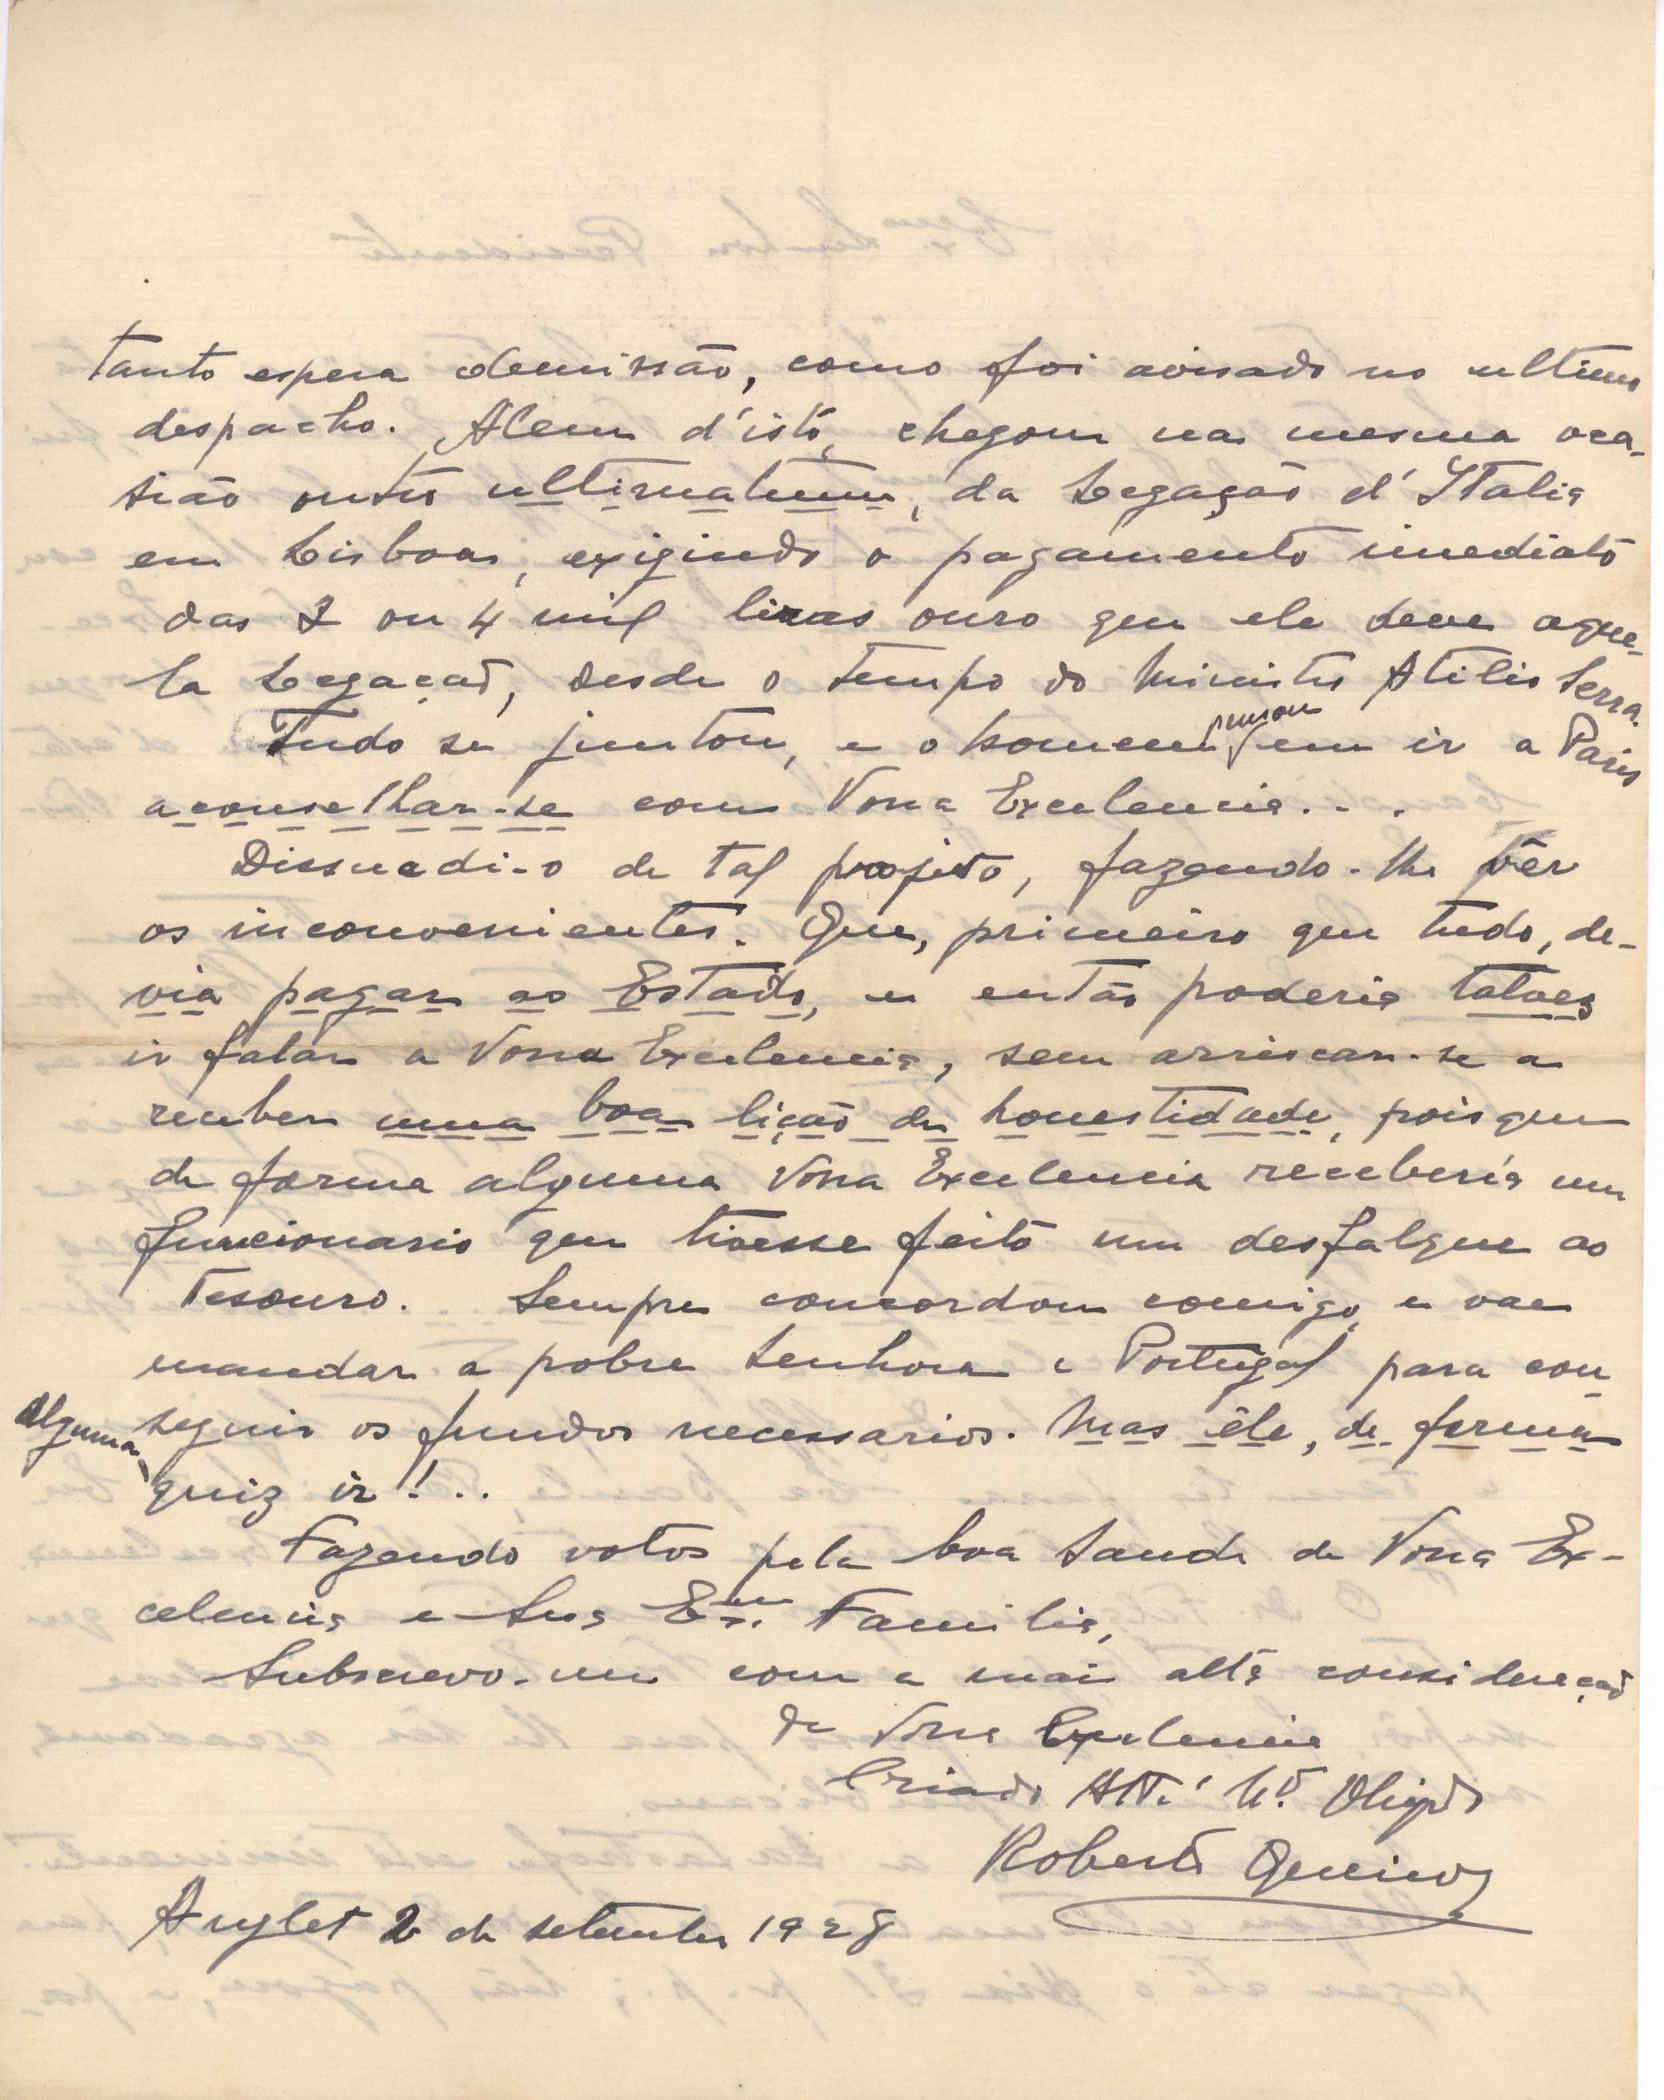 tanto espera demissão, como foi avisado no ultimo
despacho. Alem d'isto, chegou na mesma oca-
sião outro ultimatum, da Legação d'Italia
em Lisboa, exigindo o pagamento imediato
das 3 ou 4 mil liras ouro que ele deve aque-
la Legação, desde o tempo do Ministro Atilio Serra.
Tudo se juntou, e o homem pensou em ir a Paris
aconselhar-se com Vossa Excelencia...
Dissuadi-o de tal projeto, fazendo-lhe vêr
os inconvenientes. Que, primeiro que tudo, de-
via pagar ao Estado, e então poderia talvez
ir falar a Vossa Excelencia, sem arriscar-se a
receber uma boa lição de honestidade, pois que
de forma alguma Vossa Excelencia receberia um
funcionario que tivesse feito um desfalque ao
Tesouro. Sempre concordou comigo, e vae
mandar a pobre Senhora a Portugal para con-
seguir os fundos necessarios. Mas êle, de forma
alguma quiz ir!..
Fazendo votos pela boa Saude de Vossa Ex-
celencia e Sua Ex.ma Familia,
Subscrevo-me com a mais alta consideração
de Vossa Excelencia
Criado Att.º V.or Obrigdo
Roberto Queiroz
Anglet 2 de setembro 1928